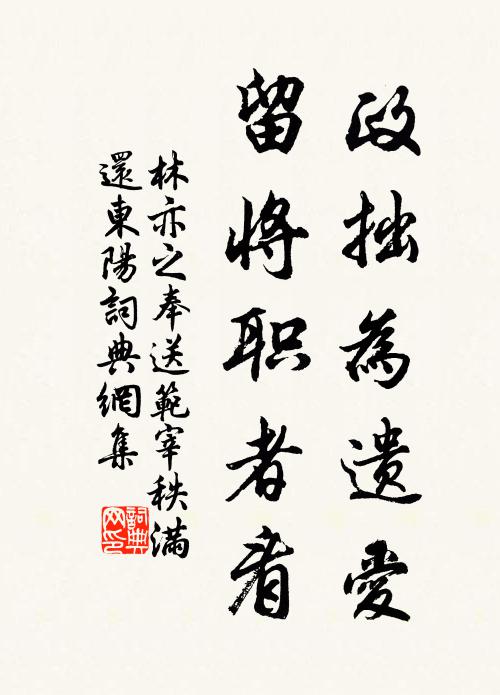 政拙為遗愛
留將职者看
林亦之奉送範宰秩滿
還東陽詞典網集
詞典
网印